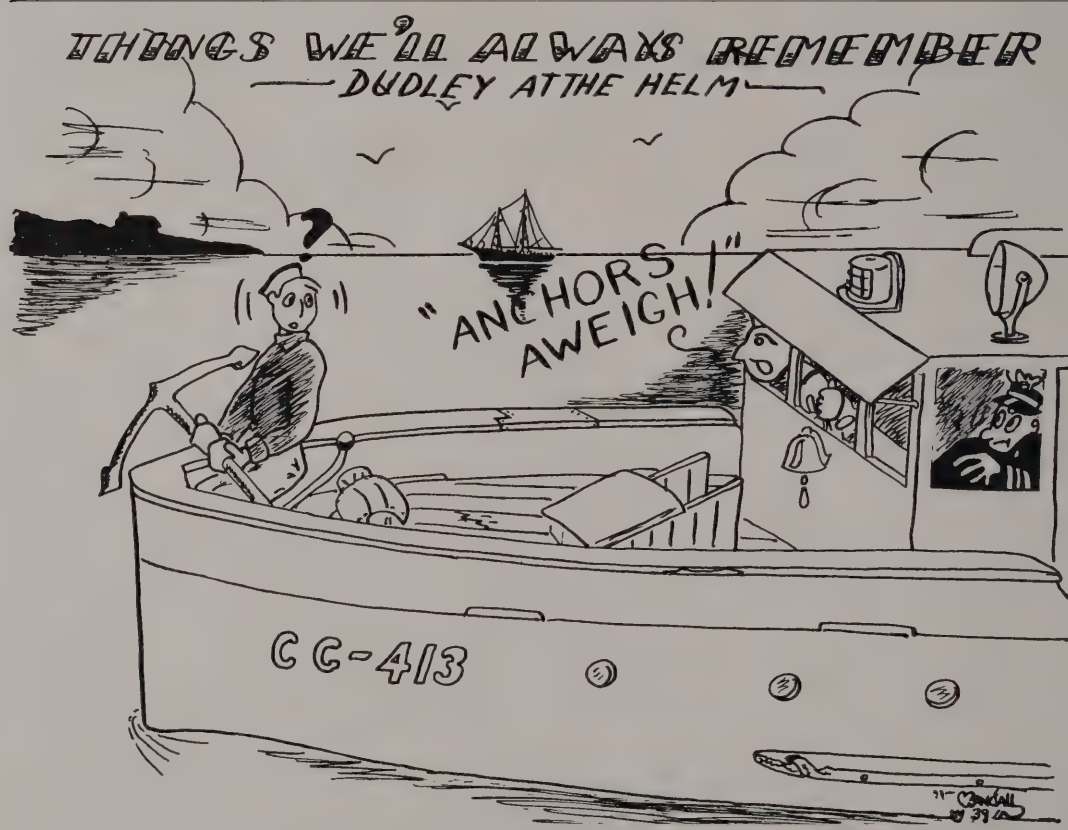 THINGS WE'LL ALWAYS REMEMBER
— DUDLEY AT THE HELM —
?
"ANCHORS
AWEIGH!"
CC-413
39